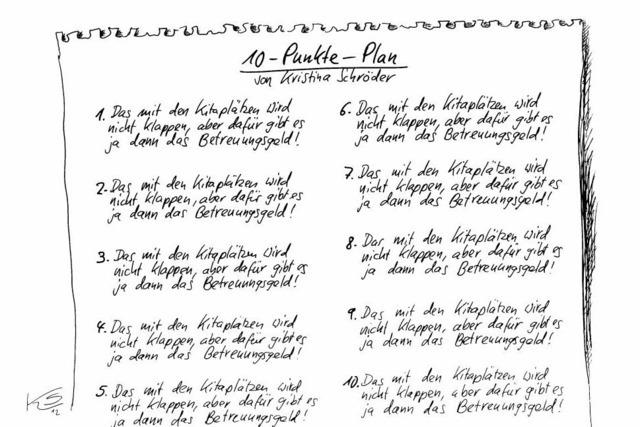 10-Punkte-Plan
von Kristina Schröder
1. Das mit den Kitaplätzen wird
nicht klappen, aber dafür gibt es
ja dann das Betreuungsgeld!
2. Das mit den Kitaplätzen wird
nicht klappen, aber dafür gibt es
ja dann das Betreuungsgeld!
3. Das mit den Kitaplätzen wird
nicht klappen, aber dafür gibt es
ja dann das Betreuungsgeld!
4. Das mit den Kitaplätzen wird
nicht klappen, aber dafür gibt es
ja dann das Betreuungsgeld!
5. Das mit den Kitaplätzen wird
nicht klappen, aber dafür gibt es
ja dann das Betreuungsgeld!
6. Das mit den Kitaplätzen wird
nicht klappen, aber dafür gibt es
ja dann das Betreuungsgeld!
7. Das mit den Kitaplätzen wird
nicht klappen, aber dafür gibt es
ja dann das Betreuungsgeld!
8. Das mit den Kitaplätzen wird
nicht klappen, aber dafür gibt es
ja dann das Betreuungsgeld!
9. Das mit den Kitaplätzen wird
nicht klappen, aber dafür gibt es
ja dann das Betreuungsgeld!
10. Das mit den Kitaplätzen wird
nicht klappen, aber dafür gibt es
ja dann das Betreuungsgeld!
12